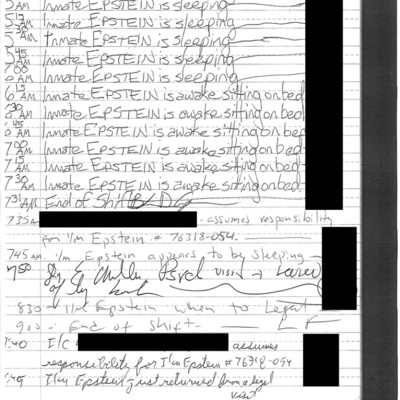 5 AM Inmate EPSTEIN is sleeping
5 15 AM Inmate EPSTEIN is sleeping
5 30 AM Inmate EPSTEIN is sleeping
5 45 AM Inmate EPSTEIN is sleeping
AM Inmate EPSTEIN is sleeping
6 15 AM Inmate EPSTEIN is awake sitting on bed
6 30 AM Inmate EPSTEIN is awake sitting on bed
6 45 AM Inmate EPSTEIN is awake sitting on bed
7 00 AM Inmate EPSTEIN is awake sitting on bed
7 15 AM Inmate EPSTEIN is awake sitting on bed
7 30 AM Inmate EPSTEIN is awake sitting on bed
AM End of Shift
735 AM - assumes responsibility
for I/m Epstein # 76318-054.
745 AM. I/m Epstein appears to be sleeping
750 Psych visit
830 - I/m Epstein when to Legal
900 - End of shift.
:40 I/C assumes
responsibility for I/m Epstein #76318-054
I/m Epstein just returned from a legal
visit